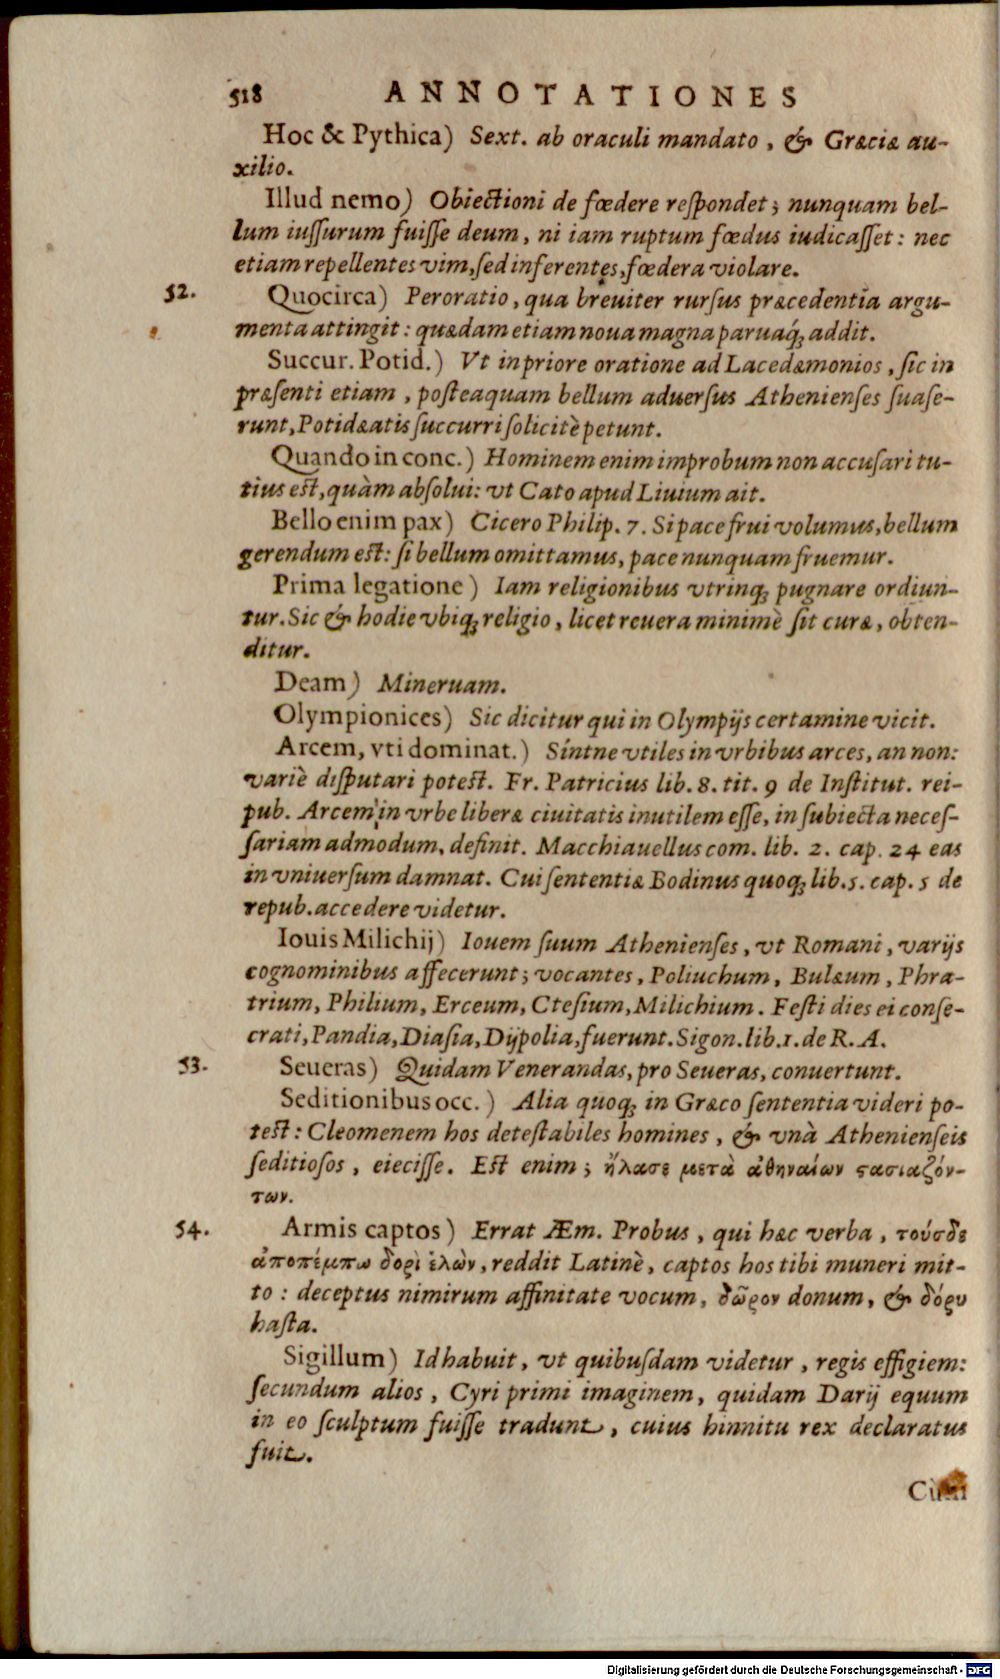 518 ANNOTATIONES
Hoc & Pythica) Sext. ab oraculi mandato, & Græciæ au-
xilio.
Illud nemo) Obiectioni de fœdere reſpondet; nunquam bel-
lum iuſſurum fuiſſe deum, ni iam ruptum fœdus iudicaſſet: nec
etiam repellentes vim, ſed inferentes, fœdera violare.
52. Quocirca) Peroratio, qua breuiter rurſus præcedentia argu-
menta attingit: quædam etiam noua magna paruaq́ꝫ addit.
Succur. Potid.) Vt in priore oratione ad Lacedæmonios, ſic in
præſenti etiam, poſteaquam bellum aduerſus Athenienſes ſuaſe-
runt, Potidæatis ſuccurri ſolicitè petunt.
Quando in conc.) Hominem enim improbum non accuſari tu-
tius eſt, quàm abſolui: vt Cato apud Liuium ait.
Bello enim pax) Cicero Philip. 7. Si pace frui volumus, bellum
gerendum eſt: ſi bellum omittamus, pace nunquam fruemur.
Prima legatione) Iam religionibus vtrinqꝫ pugnare ordiun-
tur. Sic & hodie vbiqꝫ religio, licet reuera minimè ſit curæ, obten-
ditur.
Deam) Mineruam.
Olympionices) Sic dicitur qui in Olympijs certamine vicit.
Arcem, vti dominat.) Sintne vtiles in vrbibus arces, an non:
variè diſputari poteſt. Fr. Patricius lib. 8. tit. 9 de Inſtitut. rei-
pub. Arcem in vrbe liberæ ciuitatis inutilem eſſe, in ſubiecta neceſ-
ſariam admodum, definit. Macchiauellus com. lib. 2. cap. 24 eas
in vniuerſum damnat. Cui ſententiæ Bodinus quoqꝫ lib. 5. cap. 5 de
repub. accedere videtur.
Iouis Milichij) Iouem ſuum Athenienſes, vt Romani, varijs
cognominibus affecerunt; vocantes, Poliuchum, Bulæum, Phra-
trium, Philium, Erceum, Cteſium, Milichium. Feſti dies ei conſe-
crati, Pandia, Diaſia, Dijpolia, fuerunt. Sigon. lib. 1. de R. A.
53. Seueras) Quidam Venerandas, pro Seueras, conuertunt.
Seditionibus occ.) Alia quoqꝫ in Græco ſententia videri po-
teſt: Cleomenem hos deteſtabiles homines, & vnà Athenienſeis
ſeditioſos, eieciſſe. Eſt enim; ἤλασε μετὰ ἀθηναίων ϛασιαζόν-
των.
54. Armis captos) Errat Æm. Probus, qui hæc verba, τούσδε
ἀποπέμπω δορὶ ἑλὼν, reddit Latinè, captos hos tibi muneri mit-
to: deceptus nimirum affinitate vocum, δῶρον donum, & δόρυ
haſta.
Sigillum) Id habuit, vt quibuſdam videtur, regis effigiem:
ſecundum alios, Cyri primi imaginem, quidam Darij equum
in eo ſculptum fuiſſe tradunt, cuius hinnitu rex declaratus
fuit.
Digitalisierung gefördert durch die Deutsche Forschungsgemeinschaft - DFG